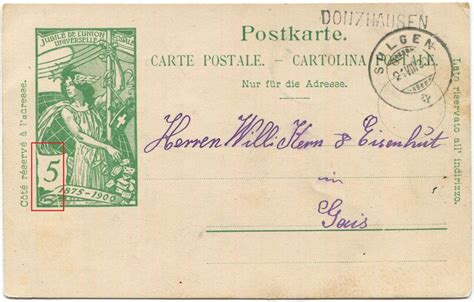 DONZHAUSEN
Postkarte.
CARTE POSTALE. - CARTOLINA POSTALE.
Nur für die Adresse.
SULGEN
JUBILÉ DE L'UNION
UNIVERSELLE POSTALE
5
1875-1900
Côté réservé à l'adresse.
Lato riservato all' indirizzo.
Herren Willi Kern & Eisenhut
in
Gais